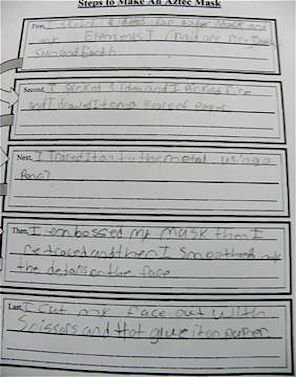 Steps to Make An Aztec Mask
First, I ideas for Aztec Mask and
my Elements I
Sun and Earth
Second, I picked 1 idea and I picked fire
and I drawed It on a Piece of Paper
Next, I Traced It on to the metal. using a
Pencil
Then, I embossed my mask then I
retraced and then I Smoothed
the details on the face
Last, I cut my face out with
Scissors and Hot glue it on paper